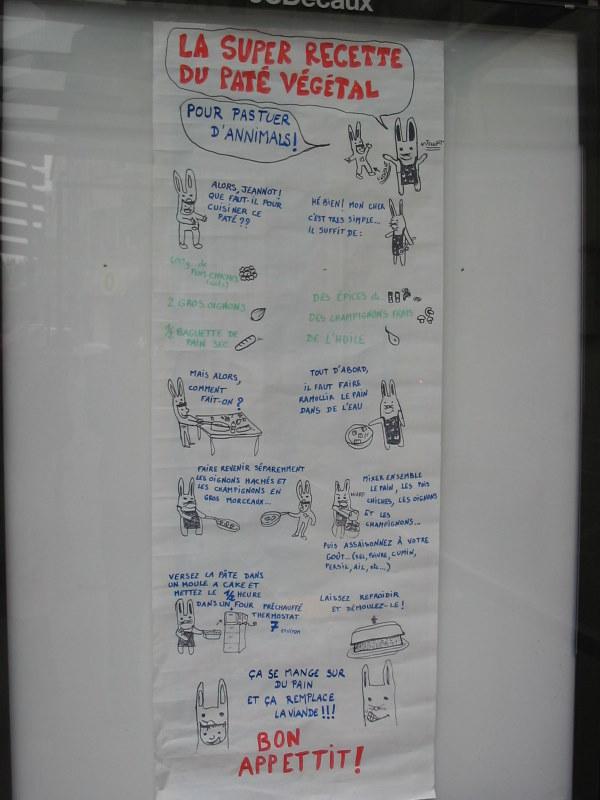 JCDecaux
LA SUPER RECETTE
DU PATÉ VÉGÉTAL
POUR PAS TUER
D'ANNIMALS!
ALORS, JEANNOT!
QUE FAUT-IL POUR
CUISINER CE
PATÉ ??
HÉ BIEN! MON CHER
C'EST TRES SIMPLE...
IL SUFFIT DE:
DE
POIS-CHICHES
2 GROS OIGNONS
½ BAGUETTE DE
PAIN SEC
DES ÉPICES
DES CHAMPIGNONS FRAIS
DE L'HUILE
MAIS ALORS,
COMMENT
FAIT-ON ?
TOUT D'ABORD,
IL FAUT FAIRE
RAMOLLIR LE PAIN
DANS DE L'EAU
FAIRE REVENIR SÉPAREMENT
LES OIGNONS HACHÉS ET
LES CHAMPIGNONS EN
GROS MORCEAUX...
MIXER ENSEMBLE
LE PAIN, LES POIS
CHICHES, LES OIGNONS
ET LES
CHAMPIGNONS...
PUIS ASSAISONNEZ À VOTRE
GOÛT... (SEL, POIVRE, CUMIN,
PERSIL, AIL, etc...)
VERSEZ LA PÂTE DANS
UN MOULE A CAKE ET
METTEZ LE ½ HEURE
DANS UN FOUR PRÉCHAUFFÉ
THERMOSTAT
7 environ
LAISSEZ REFROIDIR
ET DÉMOULEZ-LE!
ÇA SE MANGE SUR
DU PAIN
ET ÇA REMPLACE
LA VIANDE!!!
BON
APPETTIT!